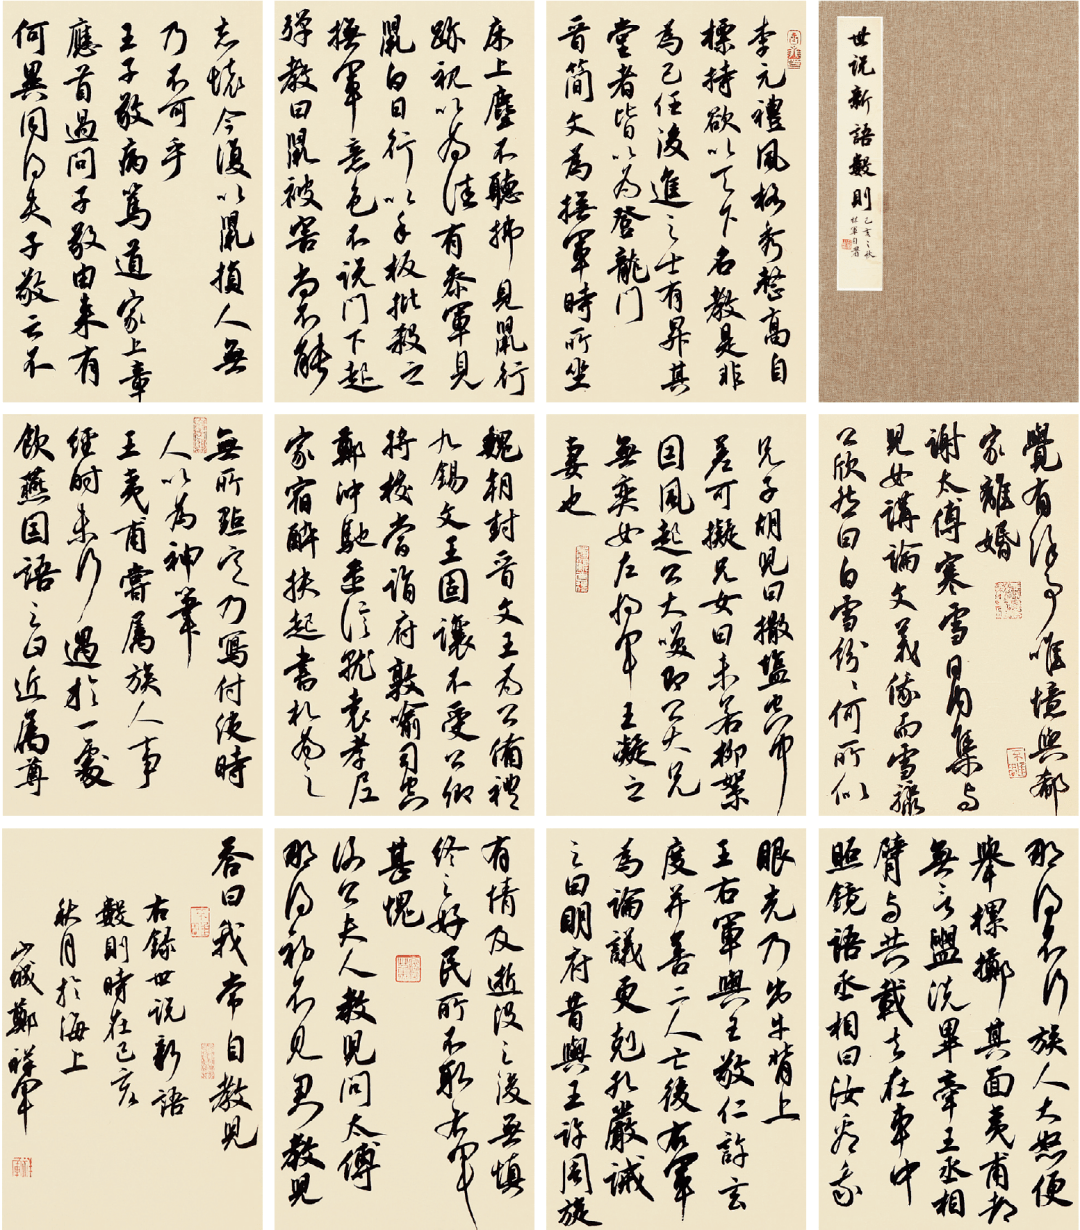 世説新語數則
己亥之秋
祥軍自署
李元禮風格秀整高自
標持欲以天下名教是非
為己任後進之士有昇其
堂者皆以為登龍門
晉簡文為撫軍時所坐
床上塵不聽拂見鼠行
跡視以為佳有參軍見
鼠白日行以手板批殺之
撫軍意色不説門下起
彈教曰鼠被害尚不能
忘懷今復以鼠損人無
乃不可乎
王子敬病篤道家上章
應首過問子敬由来有
何異同得失子敬云不
覺有餘事唯憶與郗
家離婚
謝太傅寒雪日內集與
兒女講論文義俄而雪驟
公欣然曰白雪紛〻何所似
兄子胡兒曰撒鹽空中
差可擬兄女曰未若柳絮
因風起公大笑即公大兄
無奕女左將軍王凝之
妻也
魏朝封晉文王為公備禮
九錫文王固讓不受公卿
將校當詣府敦喻司空
鄭沖馳遣信就袁孝尼
家宿醉扶起書札為之
無所點定乃寫付使時
人以為神筆
王夷甫嘗屬族人事
經時未行遇於一處
飲燕因語之曰近屬尊
那得不行族人大怒便
舉樏擲其面夷甫都
無言盥洗畢牽王丞相
臂與共載去在車中
照鏡語丞相曰汝看我
眼光乃出牛背上
王右軍與王敬仁許玄
度并善二人亡後右軍
為論議更剋孔巖誡
之曰明府昔與王許周旋
有情及逝沒之後無慎
終之好民所不取右軍
甚愧
謝公夫人教兒問太傅
那得初不見君教兒
答曰我常自教兒
右錄世説新語
數則時在己亥
秋月於海上
山城鄭祥軍